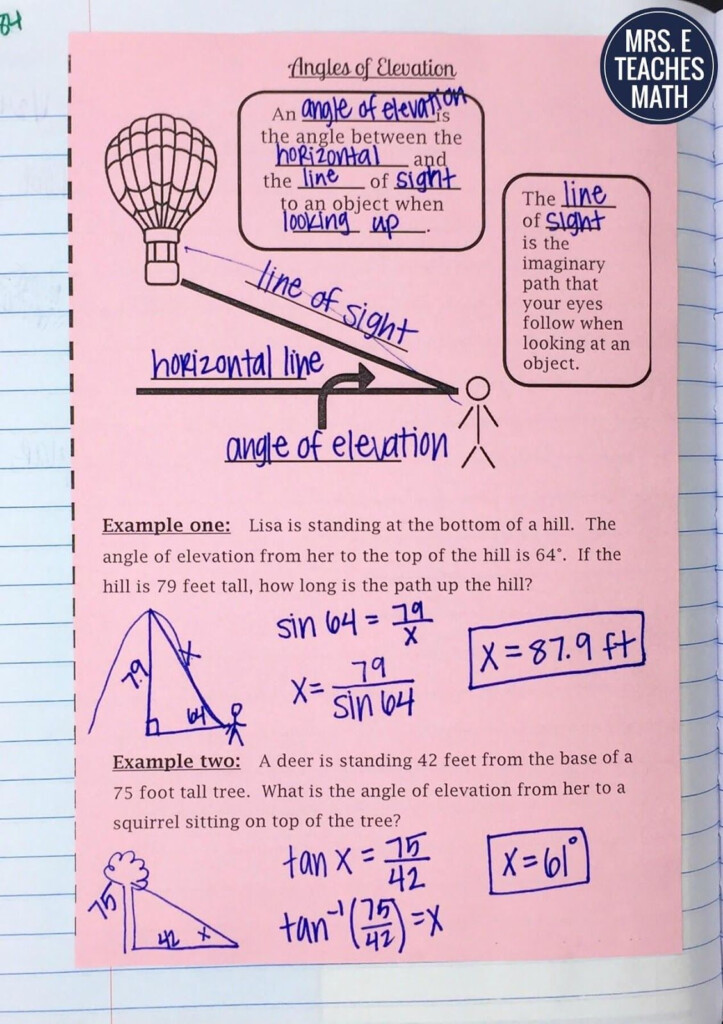 84
MRS. E
TEACHES
MATH
Angles of Elevation
An angle of elevation is
the angle between the
horizontal and
the line of sight
to an object when
looking up.
The line
of sight
is the
imaginary
path that
your eyes
follow when
looking at an
object.
line of sight
horizontal line
angle of elevation
Example one: Lisa is standing at the bottom of a hill. The
angle of elevation from her to the top of the hill is 64°. If the
hill is 79 feet tall, how long is the path up the hill?
79
x
64
sin 64 = 79/x
x = 79/sin 64
x = 87.9 ft
Example two: A deer is standing 42 feet from the base of a
75 foot tall tree. What is the angle of elevation from her to a
squirrel sitting on top of the tree?
75
42
x
tan x = 75/42
tan⁻¹(75/42) = x
x = 61°